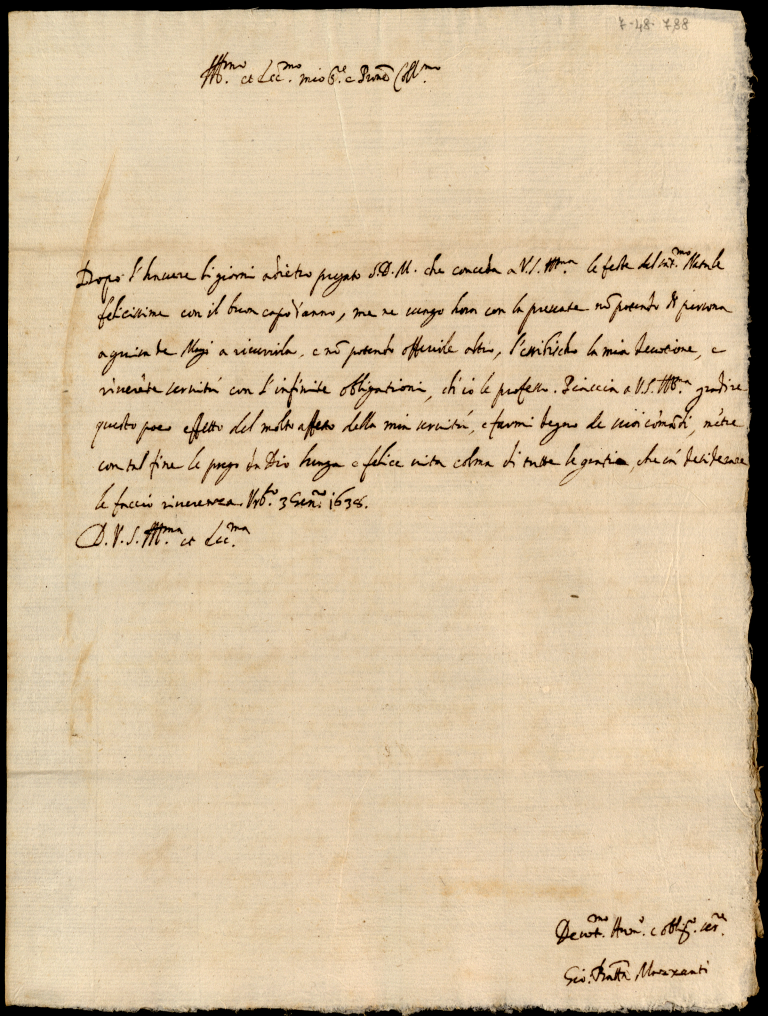 7-48-788
Ill.mo et Ecc.mo mio S.re e Pron Coll.mo
Dopo l'havere li giorni adietro pregato S.D.M. che conceda a V.S. Ill.ma le feste del Sant.mo Natale
felicissime con il buon capo d'anno, me ne vengo hora con la presente nō potendo di persona
a guisa de Magi a riverirla, e nō potendo offerirle altro, l'essibisco la mia devotione, e
riverēte servitú con l'infinite obligationi, ch'io le professo. Piaccia a V.S. Ill.ma gradire
questo poco effetto del molto affetto della mia servitú, e farmi degno de suoi comādi, mētre
con tal fine le prego da Dio lunga e felice vita colma di tutte le gratie, che sà desiderare
le faccio riverenza. Urb.o 3 Gen.o 1638.
D. V. S. Ill.ma et Ecc.ma
Devot.mo Hum.o e oblig.o ser.re
Gio. Batta Mazzanti